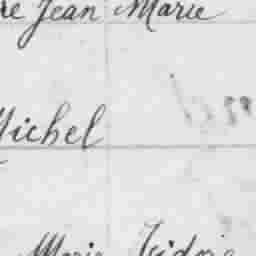 re Jean Marie
Michel
Marie Isidore